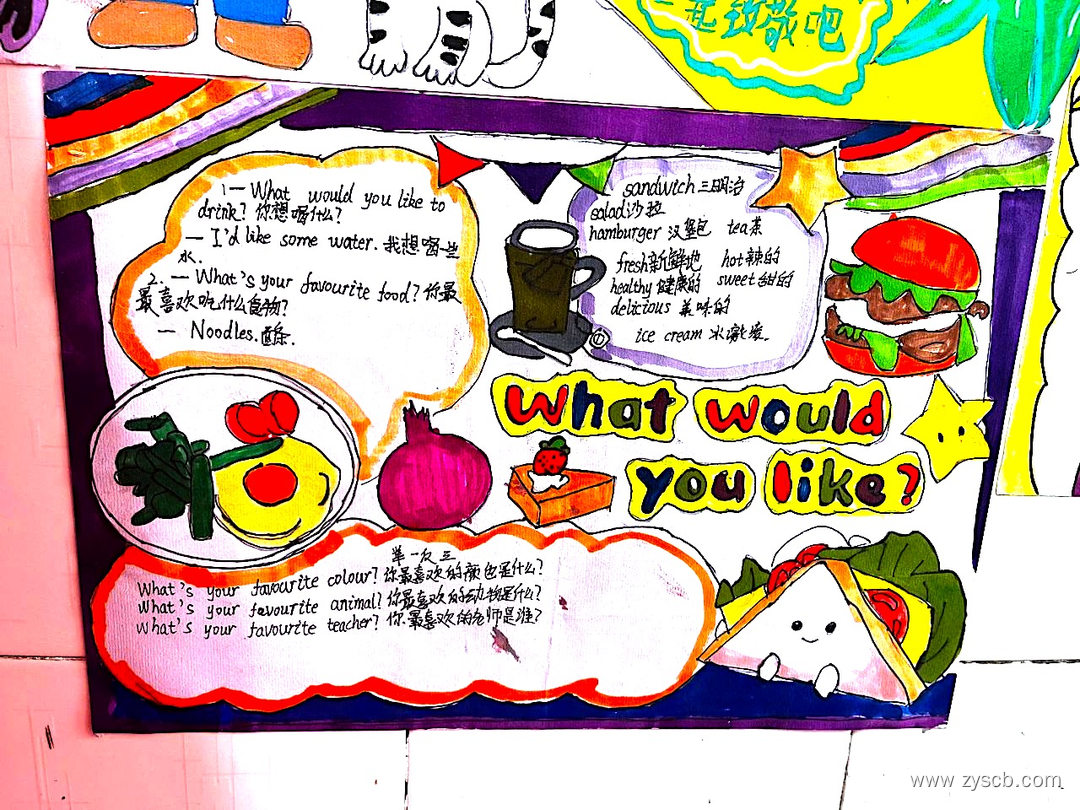 一起致敬吧
1 — What would you like to
drink? 你想喝什么?
— I'd like some water. 我想喝一些
水.
2. — What's your favourite food? 你最
最喜欢吃什么食物?
— Noodles. 面条.
sandwich 三明治
salad 沙拉
hamburger 汉堡包 tea 茶
fresh 新鲜地 hot 辣的
healthy 健康的 sweet 甜的
delicious 美味的
ice cream 冰激凌.
What would
you like?
举一反三
What's your favourite colour? 你最喜欢的颜色是什么?
What's your favourite animal? 你最喜欢的动物是什么?
What's your favourite teacher? 你最喜欢的老师是谁?
www.zyscb.com